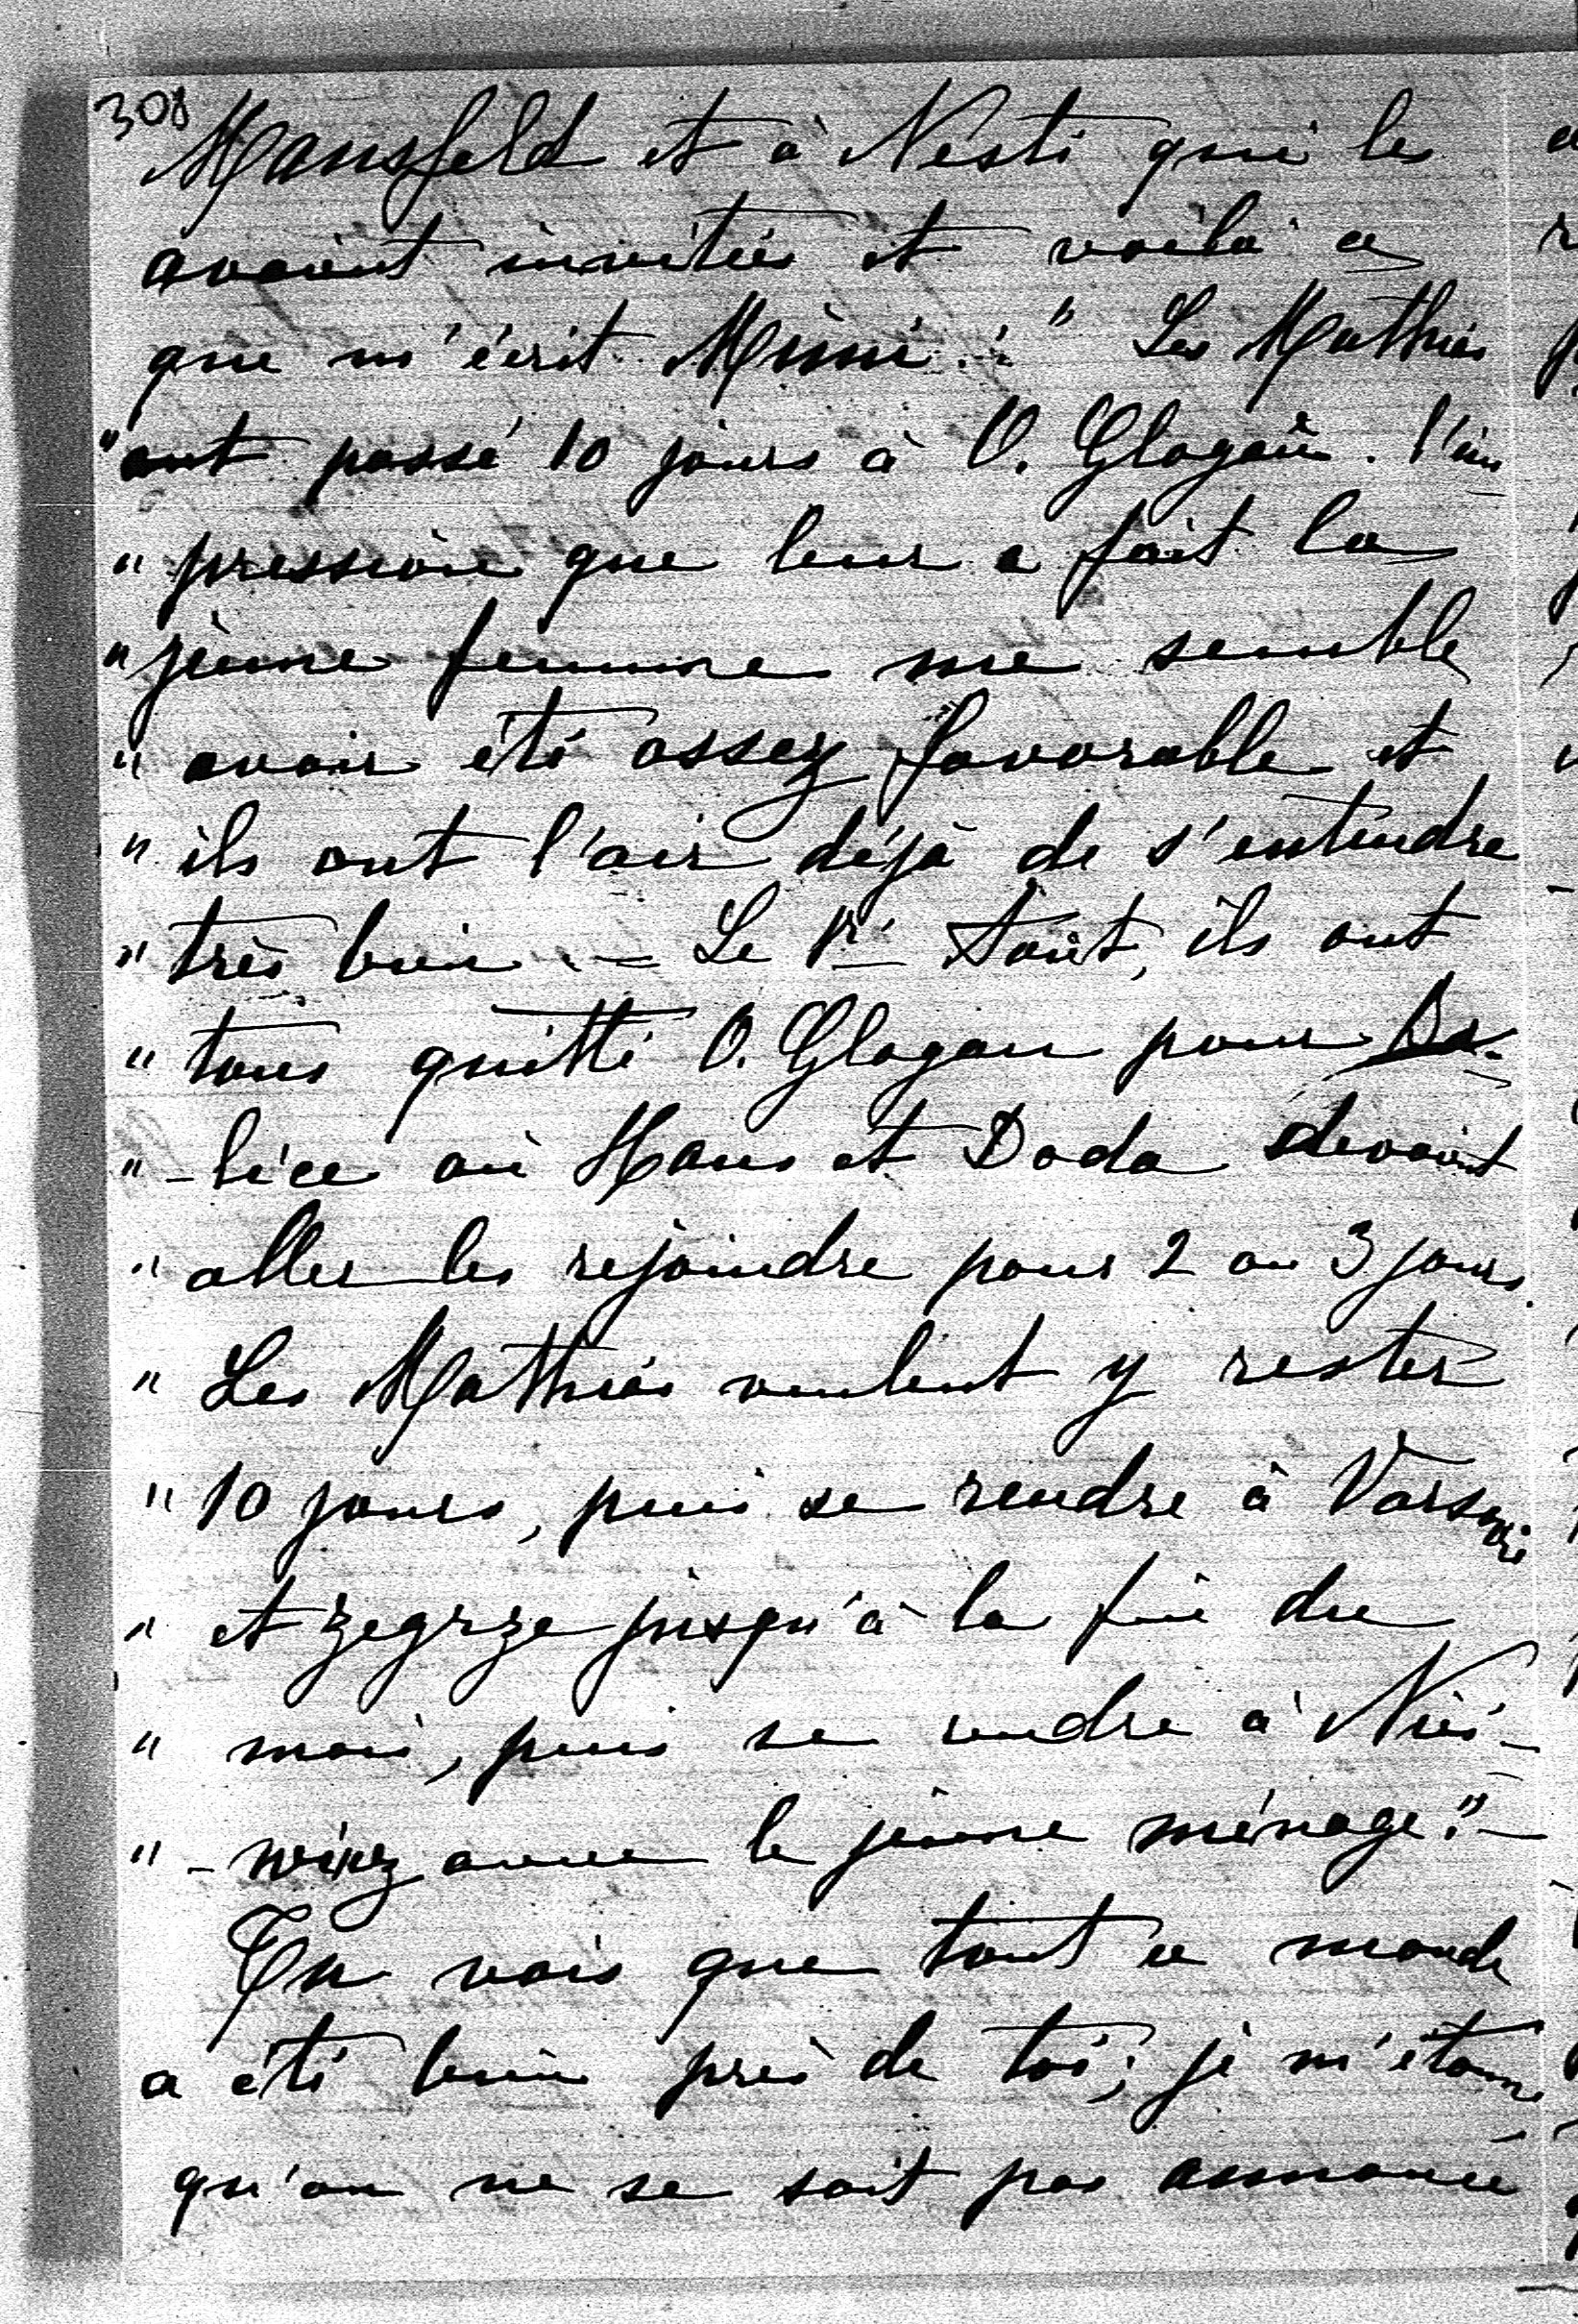 308
Mansfeld et à Nesti qui les
avaient invitées et voilà ce
que m'écrit Mimi : " Les Mathias
" ont passé 10 jours à O. Glogau. l'im
" pression que leur a fait la
" jeune femme me semble
" avoir été assez favorable et
" ils ont l'air déjà de s'entendre
" très bien. — Le 1er Août, ils ont
" tous quitté O. Glogau pour Ba-
" -lice où Hans et Doda devaient
" aller les rejoindre pour 2 ou 3 jours.
" Les Mathias veulent y rester
" 10 jours, puis se rendre à Varsovie
" et Zegrze jusqu'à la fin du
" mois, puis se rendre à Nies-
" -wiez avec le jeune ménage." —
Tu vois que tout ce monde
a été bien près de toi; je m'étonne
qu'on ne se soit pas annoncé